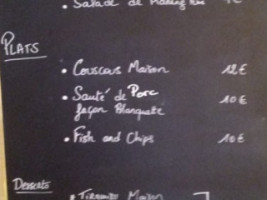 • Salade de
PLATS
• Couscous Maison 12€
• Sauté de Porc
façon Blanquette 10€
• Fish and Chips 10€
Desserts
• Tiramisu Maison